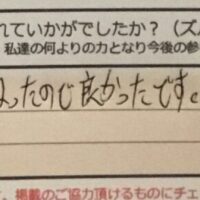 れていかがでしたか？（ズバ
私達の何よりの力となり今後の参
ったので良かったです。
、掲載のご協力頂けるものにチェ